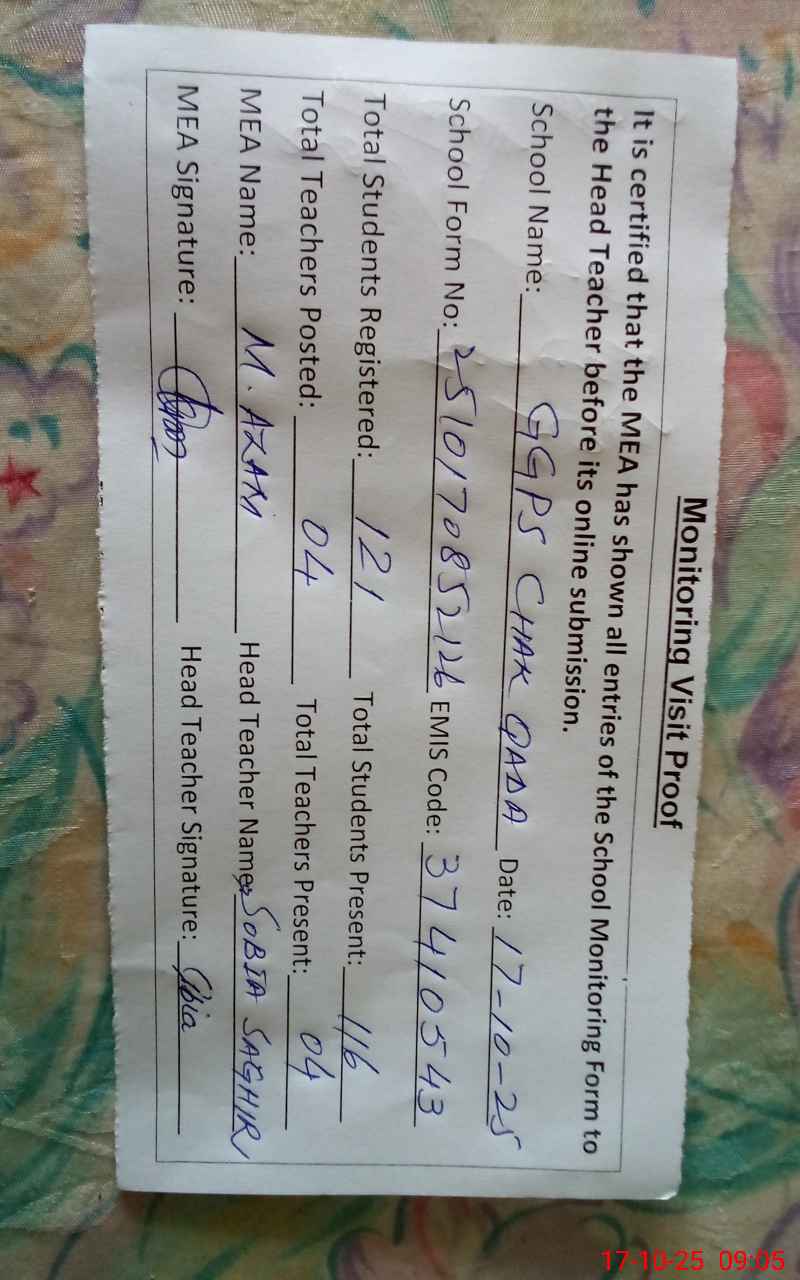 Monitoring Visit Proof
It is certified that the MEA has shown all entries of the School Monitoring Form to
the Head Teacher before its online submission.
School Name: GGPS CHAK QADA Date: 17-10-25
School Form No: 2510170852126 EMIS Code: 37410543
Total Students Registered: 121 Total Students Present: 116
Total Teachers Posted: 04 Total Teachers Present: 04
MEA Name: M. AZAM Head Teacher Name: SOBIA SAGHIR
MEA Signature: Head Teacher Signature:
17-10-25 09:05